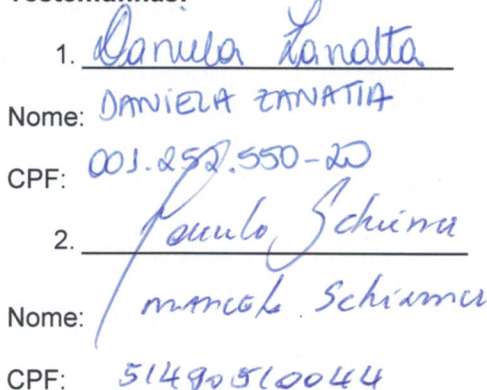 Testemunhas:
1. Daniela Zanatta
Nome: DANIELA ZANATTA
CPF: 001.252.550-20
2. Schirmer
Nome: Schirmer
CPF: 51490510044